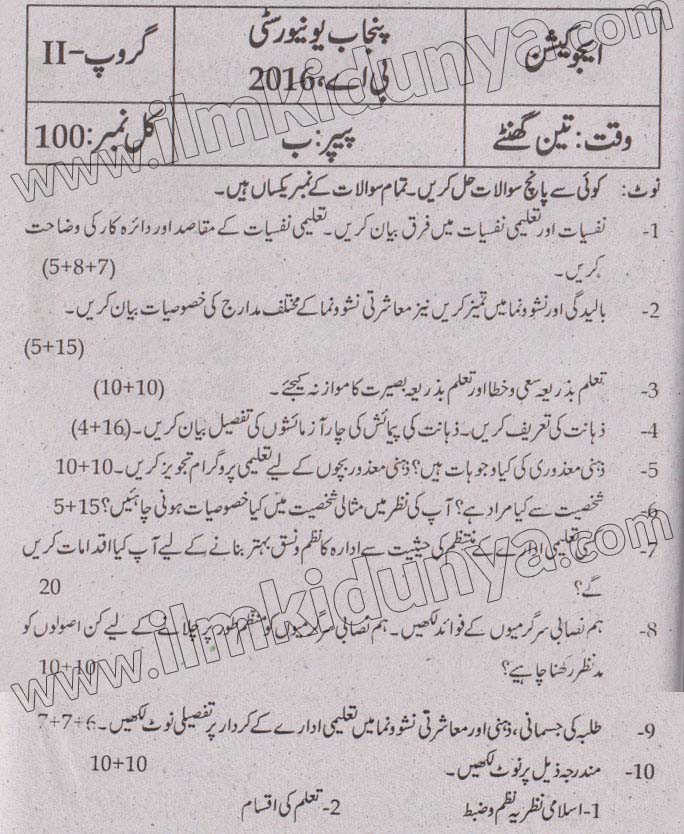 ایجوکیشن پنجاب یونیورسٹی گروپ-II
بی اے، 2016
وقت: تین گھنٹے پیپر: ب کل نمبر: 100
نوٹ: کوئی سے پانچ سوالات حل کریں۔ تمام سوالات کے نمبر یکساں ہیں۔
1- نفسیات اور تعلیمی نفسیات میں فرق بیان کریں۔ تعلیمی نفسیات کے مقاصد اور دائرہ کار کی وضاحت
کریں۔ (5+8+7)
2- بالیدگی اور نشوونما میں تمیز کریں نیز معاشرتی نشوونما کے مختلف مدارج کی خصوصیات بیان کریں۔
(5+15)
3- تعلم بذریعہ سعی و خطا اور تعلم بذریعہ بصیرت کا موازنہ کیجئے۔ (10+10)
4- ذہانت کی تعریف کریں۔ ذہانت کی پیمائش کی چار آزمائشوں کی تفصیل بیان کریں۔ (4+16)
5- ذہنی معذوری کی کیا وجوہات ہیں؟ ذہنی معذور بچوں کے لیے تعلیمی پروگرام تجویز کریں۔ 10+10
6- شخصیت سے کیا مراد ہے؟ آپ کی نظر میں مثالی شخصیت میں کیا خصوصیات ہونی چاہئیں؟ 5+15
7- کسی تعلیمی ادارے کے منتظم کی حیثیت سے ادارہ کا نظم و نسق بہتر بنانے کے لیے آپ کیا اقدامات کریں
گے؟ 20
8- ہم نصابی سرگرمیوں کے فوائد لکھیں۔ ہم نصابی سرگرمیوں کو منظم طور پر چلانے کے لیے کن اصولوں کو
مدنظر رکھنا چاہیے؟ 10+10
9- طلبہ کی جسمانی، ذہنی اور معاشرتی نشوونما میں تعلیمی ادارے کے کردار پر تفصیلی نوٹ لکھیں۔ 7+7+6
10- مندرجہ ذیل پر نوٹ لکھیں۔ 10+10
1- اسلامی نظریہ نظم و ضبط 2- تعلم کی اقسام
www.ilmkidunya.com
www.ilmkidunya.com